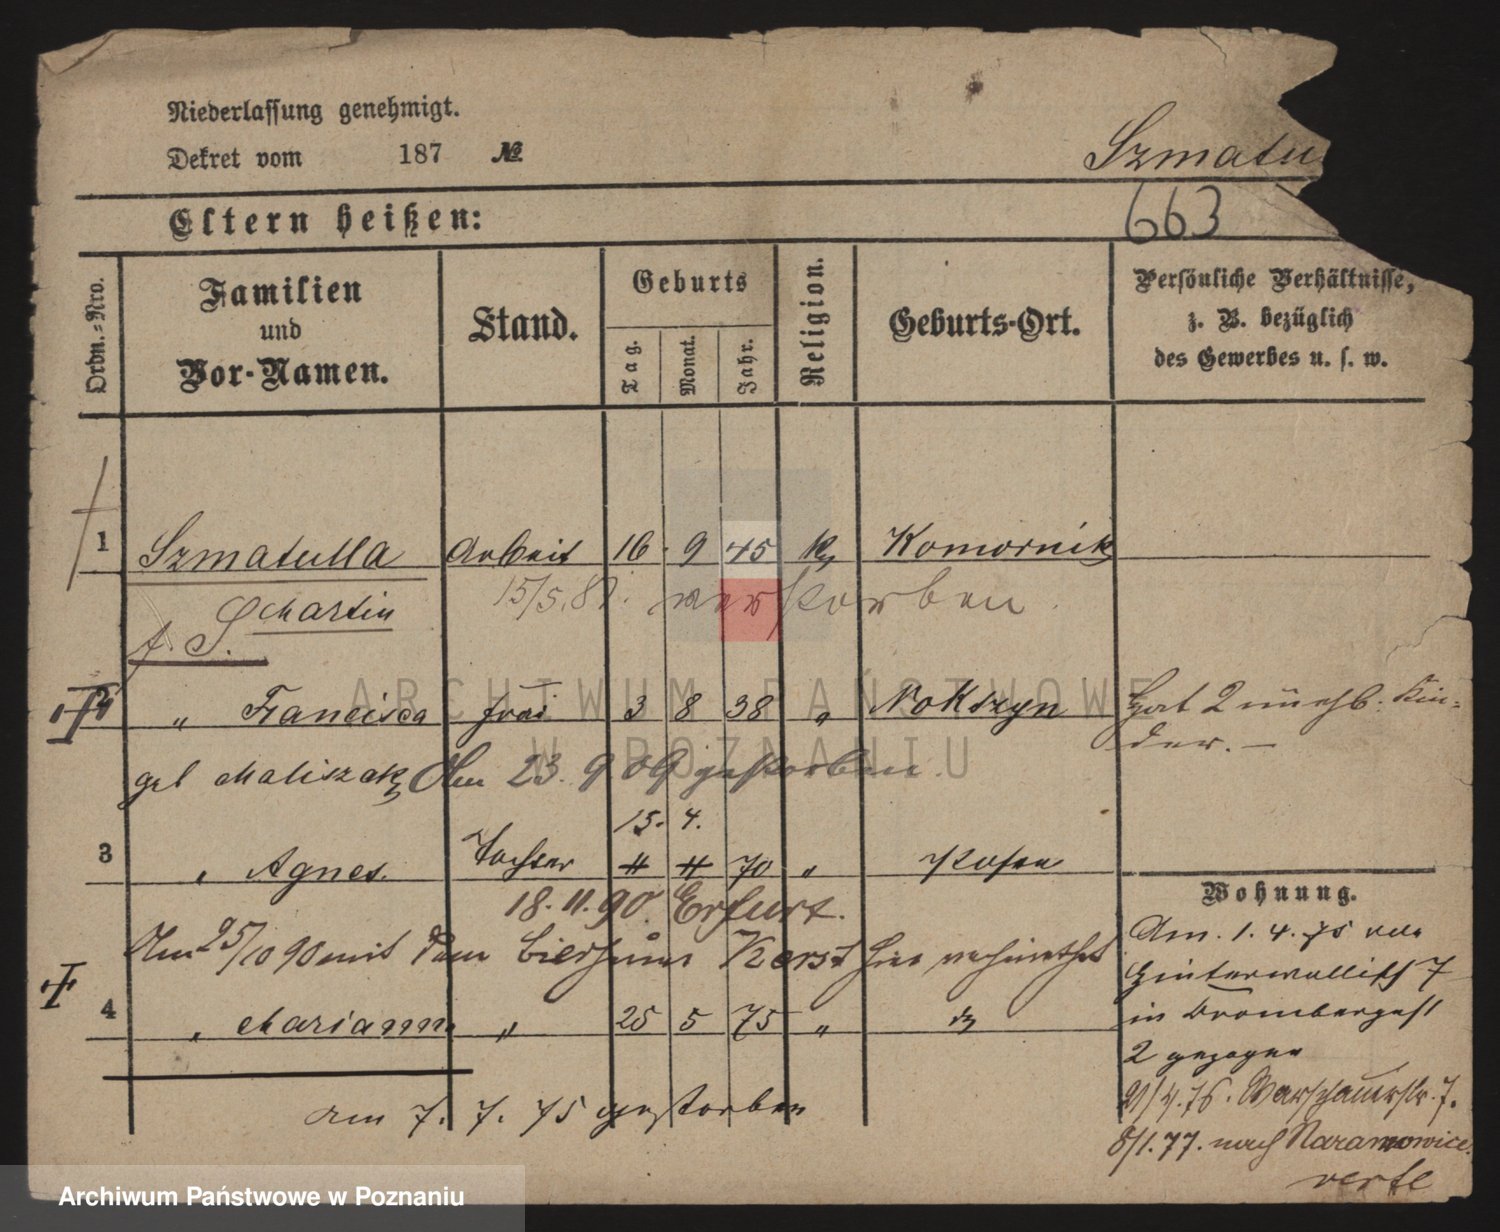 Niederlassung genehmigt.
Dekret vom 187 №
Szmatu
663
Eltern heißen:
Ordn.-Nro.
Familien
und
Vor-Namen.
Stand.
Geburts
Tag.
Monat.
Jahr.
Religion.
Geburts-Ort.
Persönliche Verhältnisse,
z. B. bezüglich
des Gewerbes u. s. w.
1 Szmatulla Arbeit 16. 9 45 K Komornik
Martin 15/5. verstorben.
"Francisca Frau 3 8 38 " Hat 2 unehl. Kin-
der. —
geb Maliszak Am 23. 9 09 gestorben.
15. 4.
3 " Agnes. Tochter 70 " Posen
18. 11. 90. Erfurt.
Wohnung.
Am 25/10 90 mit dem Kerst hier
Am. 1. 4. 75 von
Hinterwallisch 7
4 " Mariann " 25 5 75 "
in Brombergerst
2 gezogen
am 7. 7. 75 gestorben
4.76. Warschauerstr. 7.
8/1.77. nach Naramowice.
verte
ARCHIWUM PAŃSTWOWE
W POZNANIU
Archiwum Państwowe w Poznaniu